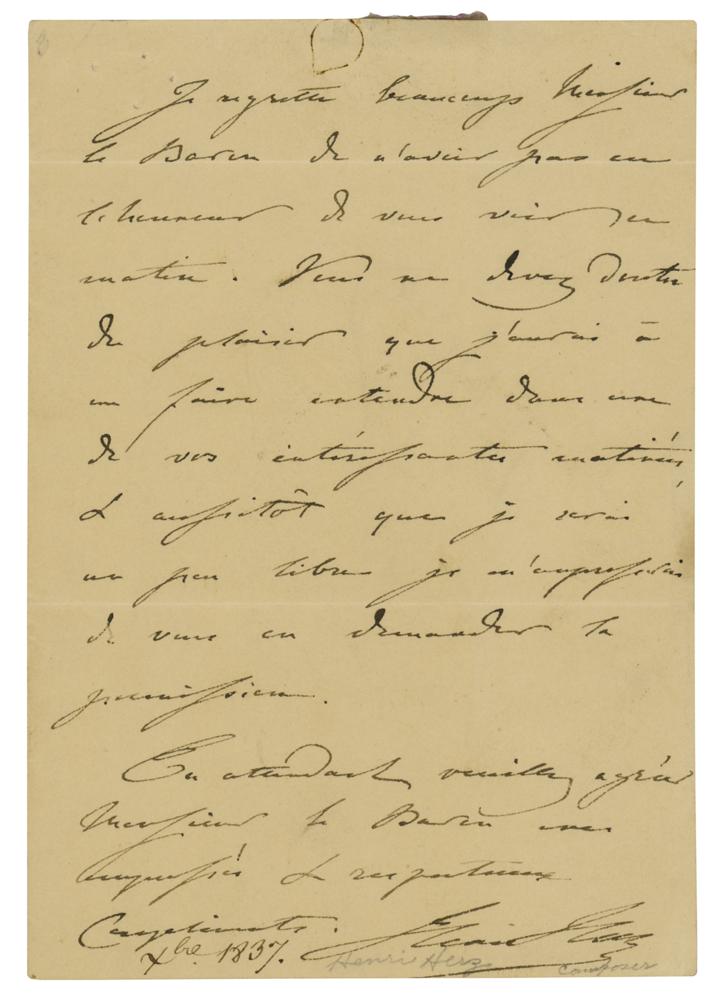 Je regrette beaucoup Monsieur
le Baron de n'avoir pas eu
l'honneur de vous voir ce
matin. Vous ne devez douter
du plaisir que j'aurai à
me faire entendre dans une
de vos intéressantes matinées
& aussitôt que je serai
un peu libre je m'empresserai
de vous en demander la
permission.
En attendant veuillez agréer
Monsieur le Baron mes
empressés & respectueux
Compliments.
Xbre 1837. Henri Herz
Henri Herz
composer